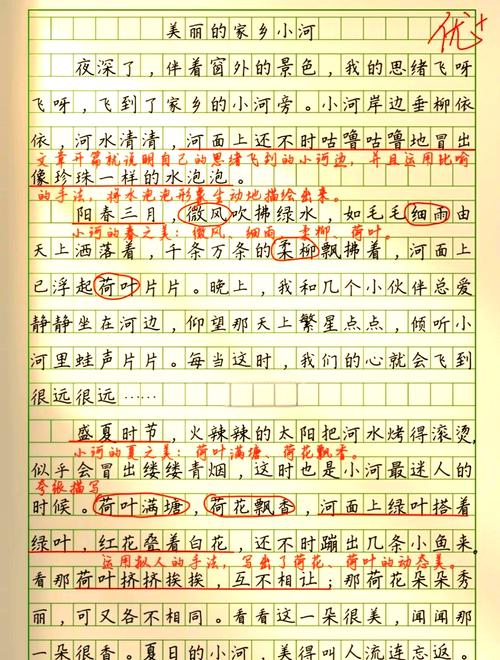 美丽的家乡小河
优+
夜深了，伴着窗外的景色，我的思绪飞呀
飞呀，飞到了家乡的小河旁。小河岸边垂柳依
依，河水清清，河面上还不时咕噜咕噜地冒出
文章开篇就说明自己的思绪飞到的小河边，并且运用比喻
像珍珠一样的水泡泡。
的手法，将水泡泡形象生动地描绘出来。
阳春三月，微风吹拂绿水，如毛毛细雨由
小河的春之美：微风、细雨、柔柳、荷叶。
天上洒落着，千条万条的柔柳飘拂着，河面上
已浮起荷叶片片。晚上，我和几个小伙伴总爱
静静坐在河边，仰望那天上繁星点点，倾听小
河里蛙声片片。每当这时，我们的心就会飞到
很远很远……
盛夏时节，火辣辣的太阳把河水烤得滚烫，
小河的夏之美：荷叶满塘、荷花飘香。
似乎会冒出缕缕青烟，这时也是小河最迷人的
夸张描写
时候。荷叶满塘，荷花飘香，河面上绿叶搭着
绿叶，红花叠着白花，还不时蹦出几条小鱼来。
运用拟人的手法，写出了荷花、荷叶的动态美。
看那荷叶挤挤挨挨，互不相让；那荷花朵朵秀
丽，可又各不相同。看看这一朵很美，闻闻那
一朵很香。夏日的小河，美得叫人流连忘返。